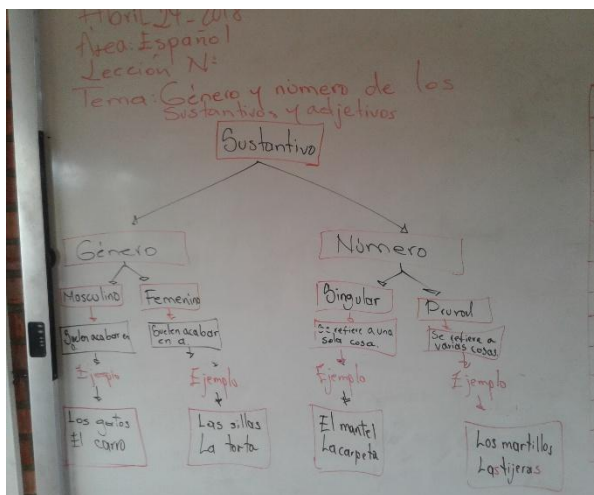 Abril 24-2018
Área: Español
Lección Nº
Tema: Género y número de los
Sustantivos y adjetivos
Sustantivo
Género
Número
Masculino
Femenino
Singular
Plural
Suelen acabar en
o.
Suelen acabar
en a
Se refiere a una
sola cosa.
Se refiere a
varias cosas
Ejemplo
Ejemplo
Ejemplo
Ejemplo
Los gatos
El carro
Las sillas
La torta
El mantel
La carpeta
Los martillos
Las tijeras